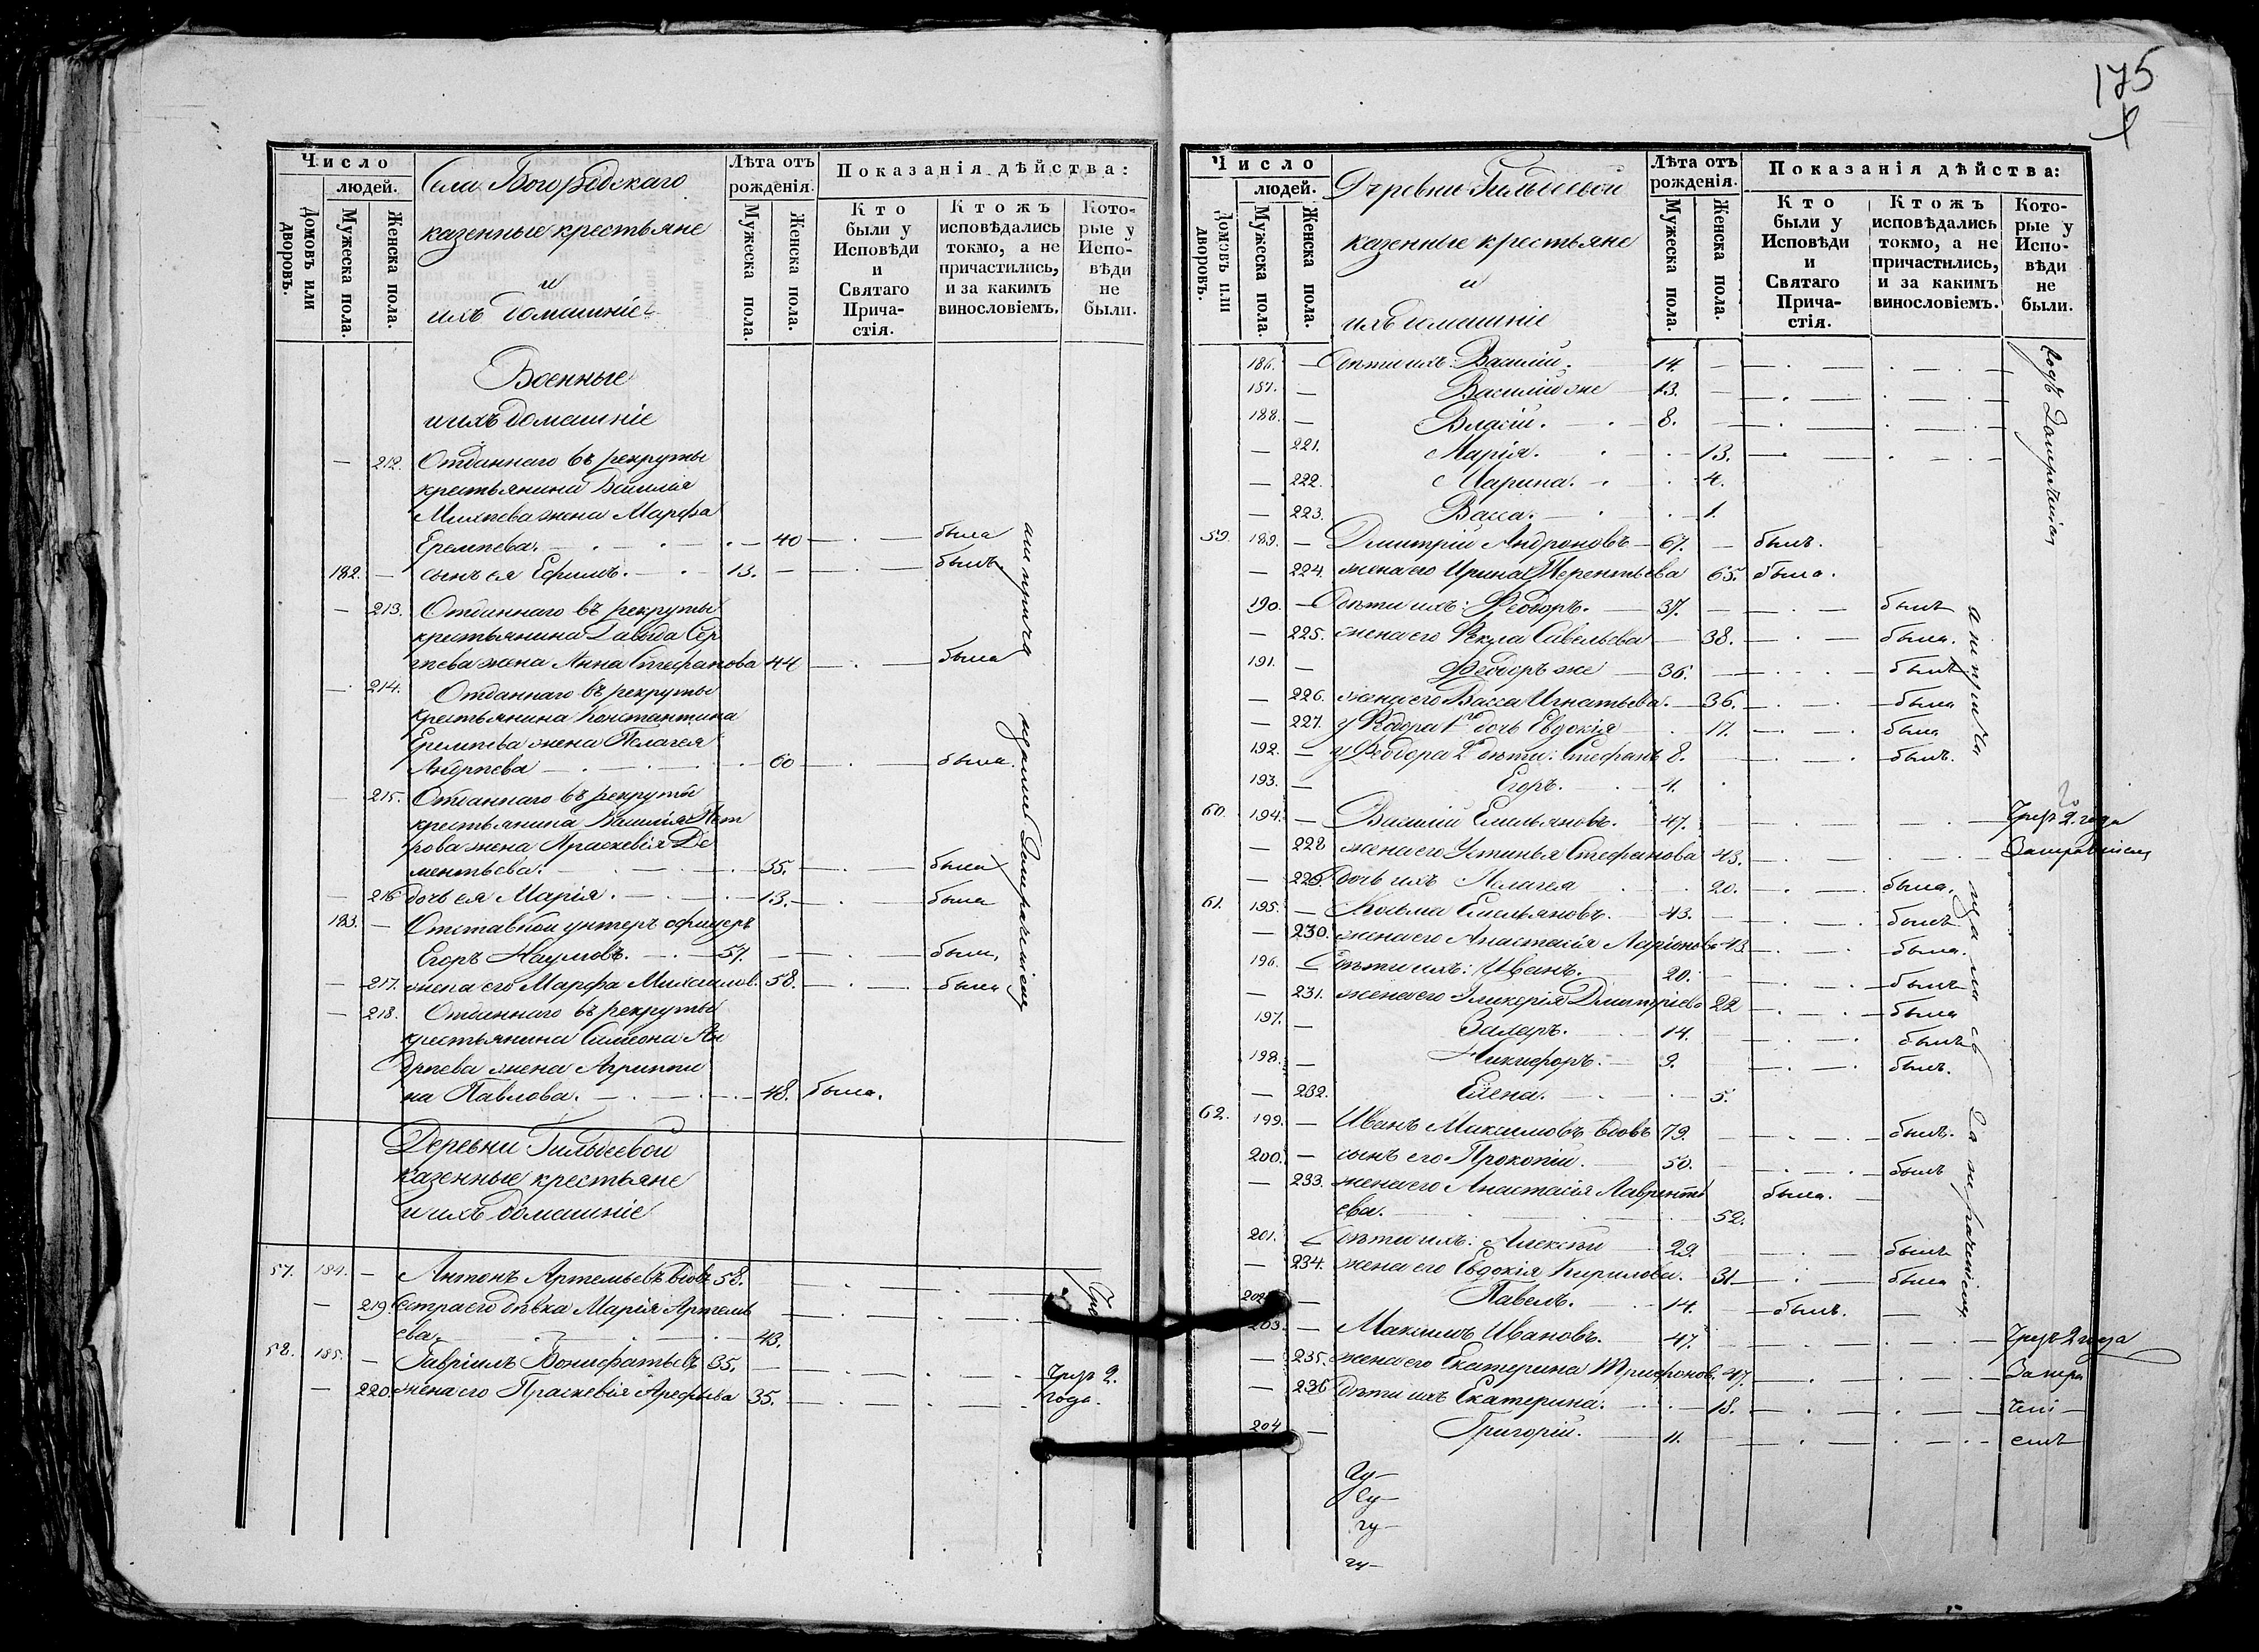 175
Число
людей.
Домовъ или дворовъ.
Мужеска пола.
Женска пола.
Села Богородскаго
казенные крестьяне
и
ихъ домашніе
Лѣта отъ рожденія.
Мужеска пола.
Женска пола.
Показанія дѣйства:
Кто были у Исповѣди и Святаго Прича-стія.
Ктожъ исповѣдались токмо, а не причастились, и за какимъ винословіемъ.
Кото-рые у Испо-вѣди не были.
Военные
и ихъ домашніе
— 212. Отданнаго въ рекруты
крестьянина Василія
Михѣева жена Марфа
Еремѣева. 40 была
182. — сынъ ея Ефимъ. 13. былъ
— 213. Отданнаго въ рекруты
крестьянина Давыда Сер
гѣева жена Анна Стефанова 44 была
— 214. Отданнаго въ рекруты
крестьянина Константина
Еремѣева жена Пелагея
Андрѣева 60 была
— 215. Отданнаго въ рекруты
крестьянина Василія Пет
рова жена Праскевія Де
ментьева. 35. была
— 216 дочь ея Марія. 13. была
183. — Отставной унтеръ офицеръ
Егоръ Наумовъ. 57. былъ
— 217. жена его Марфа Михаилов. 58. была
— 218. Отданнаго въ рекруты
крестьянина Симеона Ан
дрѣева жена Агриппи
на Павлова. 48. была.
Деревни Гильдеевой
казенные крестьяне
и ихъ домашніе
57. 184. — Антонъ Артемьевъ вдовъ 58.
— 219. Сестра его дѣвка Марія Артемь
ева. 43.
58. 185. — Гавріилъ Вонифатьевъ 35. —
— 220. жена его Праскевія Арефьева 35. года.
Число
людей.
Домовъ или дворовъ.
Мужеска пола.
Женска пола.
Деревни Гильдеевой
казенные крестьяне
и
ихъ домашніе
Лѣта отъ рожденія.
Мужеска пола.
Женска пола.
Показанія дѣйства:
Кто были у Исповѣди и Святаго Прича-стія.
Ктожъ исповѣдались токмо, а не причастились, и за какимъ винословіемъ.
Кото-рые у Испо-вѣди не были.
186. — Дѣти ихъ: Василій. 14.
187. — Василій же 13.
188. — Власій. 8.
— 221. Марія. 13.
— 222. Марина. 4.
— 223. Васса. 1.
59. 189. — Дмитрій Андроновъ 67. былъ.
— 224. жена его Ирина Терентьева 65. была.
190. — Дѣти ихъ: Ѳеодоръ. 37. былъ
— 225. жена его Ѳекла Савельева 38. была.
191. — Ѳеодоръ же 36. былъ
— 226. жена его Васса Игнатьева. 36. была
— 227. у Ѳедора 1го дочь Евдокія 17. была
192. — у Ѳеодора 2го дѣти: Стефанъ 8. былъ.
193. — Егоръ. 4.
60. 194. — Василій Емельяновъ. 47. 2. года
— 228 жена его Устинья Стефанова 43.
— 229. дочь ихъ Пелагея 20. была.
61. 195. — Козьма Емельяновъ. 43. былъ
— 230. жена его Анастасія Ларіонова 43. была.
196. — Дѣти ихъ: Иванъ. 20. былъ
— 231. жена его Гликерія Дмитріева 22 была
197. — Захаръ. 14. былъ
198. — Никифоръ. 9. былъ.
— 232. Елена. 5.
62. 199. — Иванъ Максимовъ вдовъ 79. былъ.
200. — сынъ его Прокопій. 50. былъ
— 233. жена его Анастасія Лаврентъ была.
ева. 52.
201. — Дѣти ихъ: Алексѣй 29. былъ
— 234. жена его Евдокія Кирилова. 31. была
202. — Павелъ. 14. былъ.
203. — Максимъ Ивановъ. 47. 2 года
— 235. жена его Екатерина Трифонов. 47.
— 236 Дѣти ихъ Екатерина. 18.
204 — Григорій. 11.